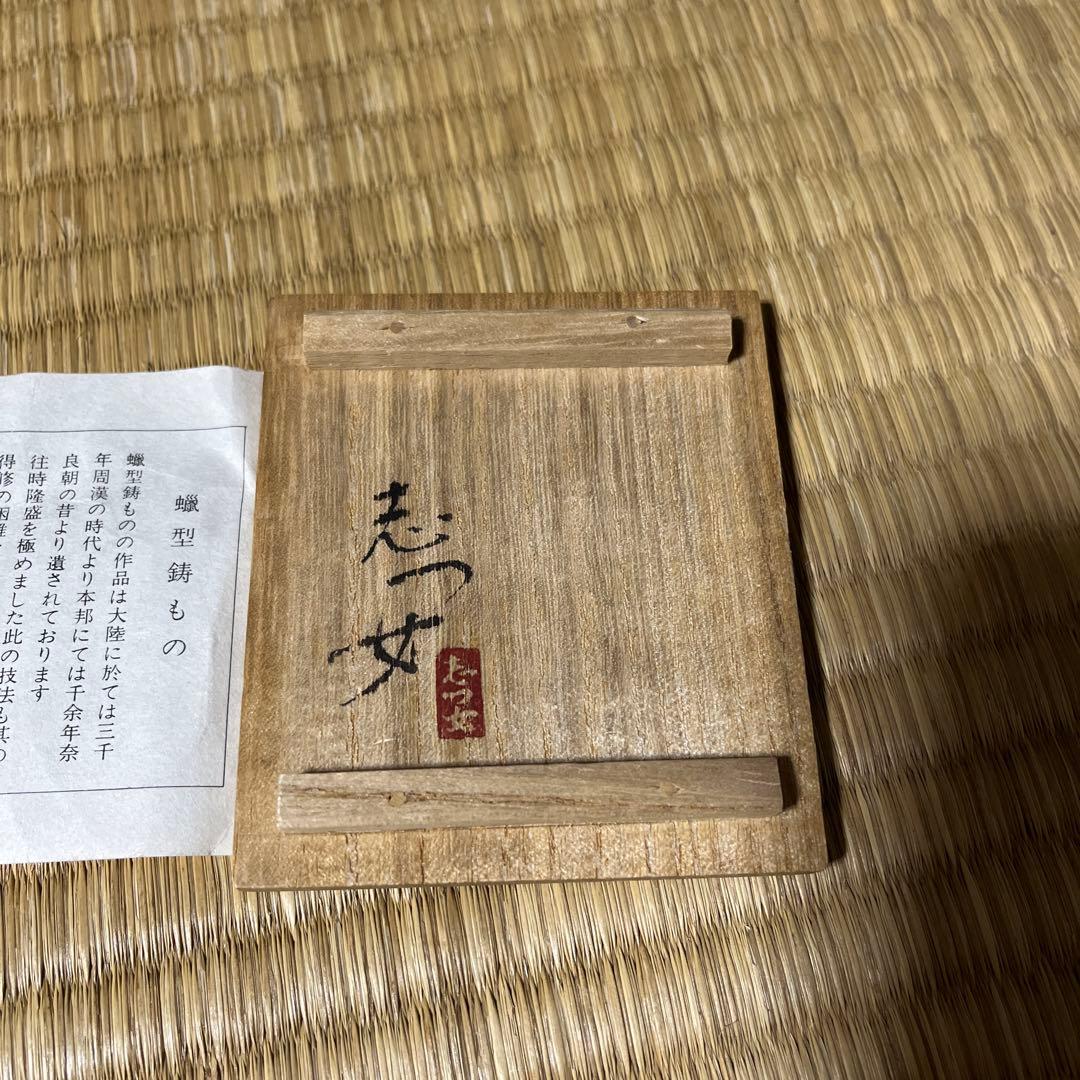 蠟型鋳もの
蠟型鋳ものの作品は大陸に於ては三千
年周漢の時代より本邦にては千余年奈
良朝の昔より遺されております
往時隆盛を極めました此の技法も其の
得修の困難
志つ女
志つ女